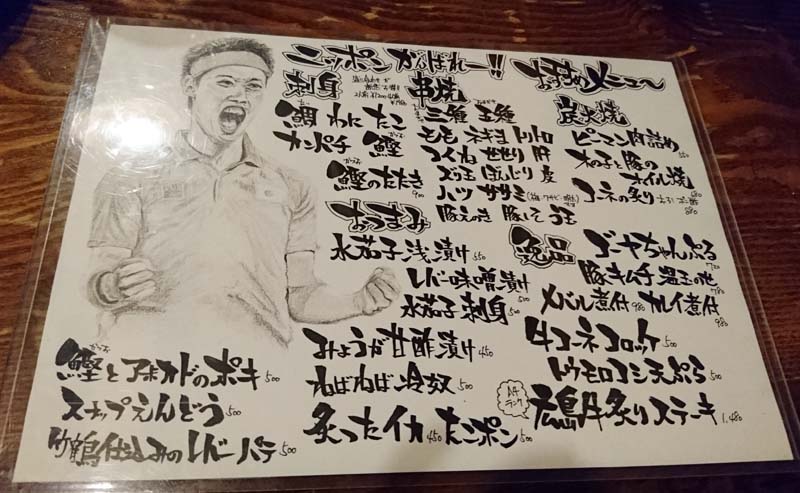 ニッポン がんばれー!! おすすめメニュー
刺身
鯛 わに たこ
カンパチ 鰹
鰹のたたき 900
串焼
三種 五種
もも ネギま トリトロ
つくね せせり 肝
ズリ ぼんじり 皮
ハツ ササミ
豚えのき 豚しそ うずら
炭火焼
ピーマン肉詰め
木の子と豚の
ホイル焼 680
コーネの炙り 880
おつまみ
水茄子浅漬け 550
レバー味噌漬け 500
水茄子刺身 500
みょうが甘酢漬け 450
ねばねば冷奴 500
炙ったイカ 450 たこポン 500
逸品
ゴーヤちゃんぷる 720
豚キムチ 温玉の世 780
メバル煮付 980 カレイ煮付 980
牛コーネコロッケ 500
トウモロコシ天ぷら 500
A4ランク
広島牛炙りステーキ 1.480
鰹とアボカドのポキ 500
スナップえんどう 500
竹鶴仕込みのレバーパテ 500